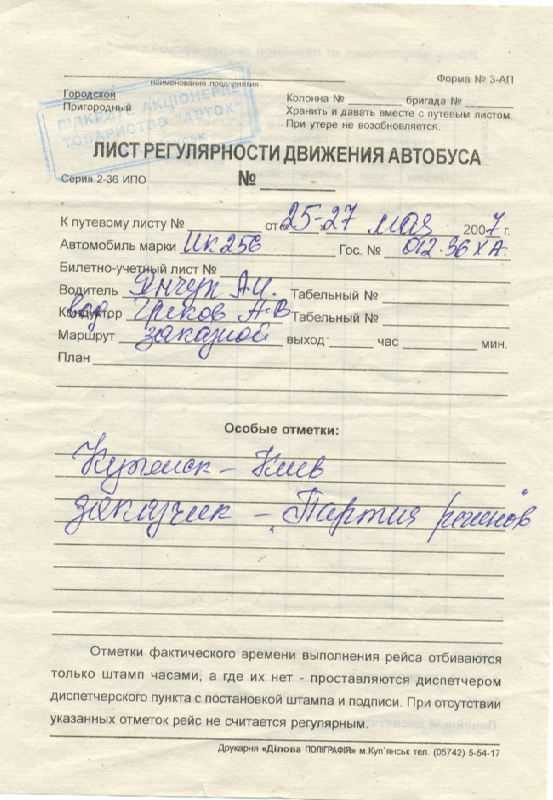 наименование предприятия
Форма № 3-АП
Городской
Пригородный
ВІДКРИТЕ АКЦІОНЕРНЕ
ТОВАРИСТВО
Колонна № бригада №
Хранить и давать вместе с путевым листом.
При утере не возобновляется.
ЛИСТ РЕГУЛЯРНОСТИ ДВИЖЕНИЯ АВТОБУСА
Серия 2-36 ИПО №
К путевому листу № от 25-27 мая 2007 г.
Автомобиль марки ИК 256 Гос. № 012-36 ХА
Билетно-учетный лист №
Водитель Янчук А.И. Табельный №
вод Кондуктор Греков А-В Табельный №
Маршрут заказной выход час мин.
План
Особые отметки:
Купянск - Киев
заказчик - Партия регионов
Отметки фактического времени выполнения рейса отбиваются
только штамп часами, а где их нет - проставляются диспетчером
диспетчерского пункта с постановкой штампа и подписи. При отсутствии
указанных отметок рейс не считается регулярным.
Друкарня «Ділова ПОЛІГРАФІЯ» м.Куп'янськ тел. (05742) 5-54-17